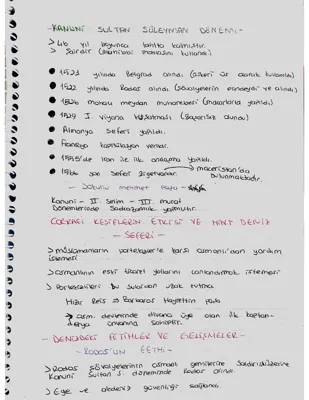 -KANUNİ SULTAN SÜLEYMAN DÖNEMİ-
> 46 yıl boyunca tahtta kalmıştır.
> Şairdir (muhibbi mahlasını kullandı)
● 1521 yılında Belgrad alındı
● 1522 yılında Rodos alındı
● 1526 mohaç meydan muharebesi (macarlarla yapıldı)
● 1529 I. Viyana kuşatması (başarısız olundu)
● Almanya seferi yapıldı.
● Fransaya kapitülasyon verildi.
● 1555'de iran ile ilk antlaşma yapıldı.
● 1566 son sefer Zigetvardır. macaristan'da bulunmaktadır.
- Sokullu mehmet paşa -
Kanuni - II. Selim - III. murat
Dönemlerinde Sadrazamlık yapmıştır.
COĞRAFİ KEŞİFLERİN ETKİSİ VE HİNT DENİZ
- SEFERİ -
> müslümanların portekizlere karşı osmanlı'dan yardım
istemesi
> osmanlının eski ticaret yollarını canlandırmak istemesi
> Portekizlileri bu sulardan uzak tutmak
Hızır Reis → Barbaros Hayrettin paşa
→ osm. devletinde divana üye olan ilk kaptan-ı
derya unvanına sahiptir.
- DENİZDEKİ FETİHLER VE GELİŞMELER -
- RODOS'UN FETHİ -
> Rodos şövalyelerinin osmanlı gemilerine saldırıda
Kanuni Sultan S. döneminde Rodos alındı.
> Ege -e güvenliği sağlandı.